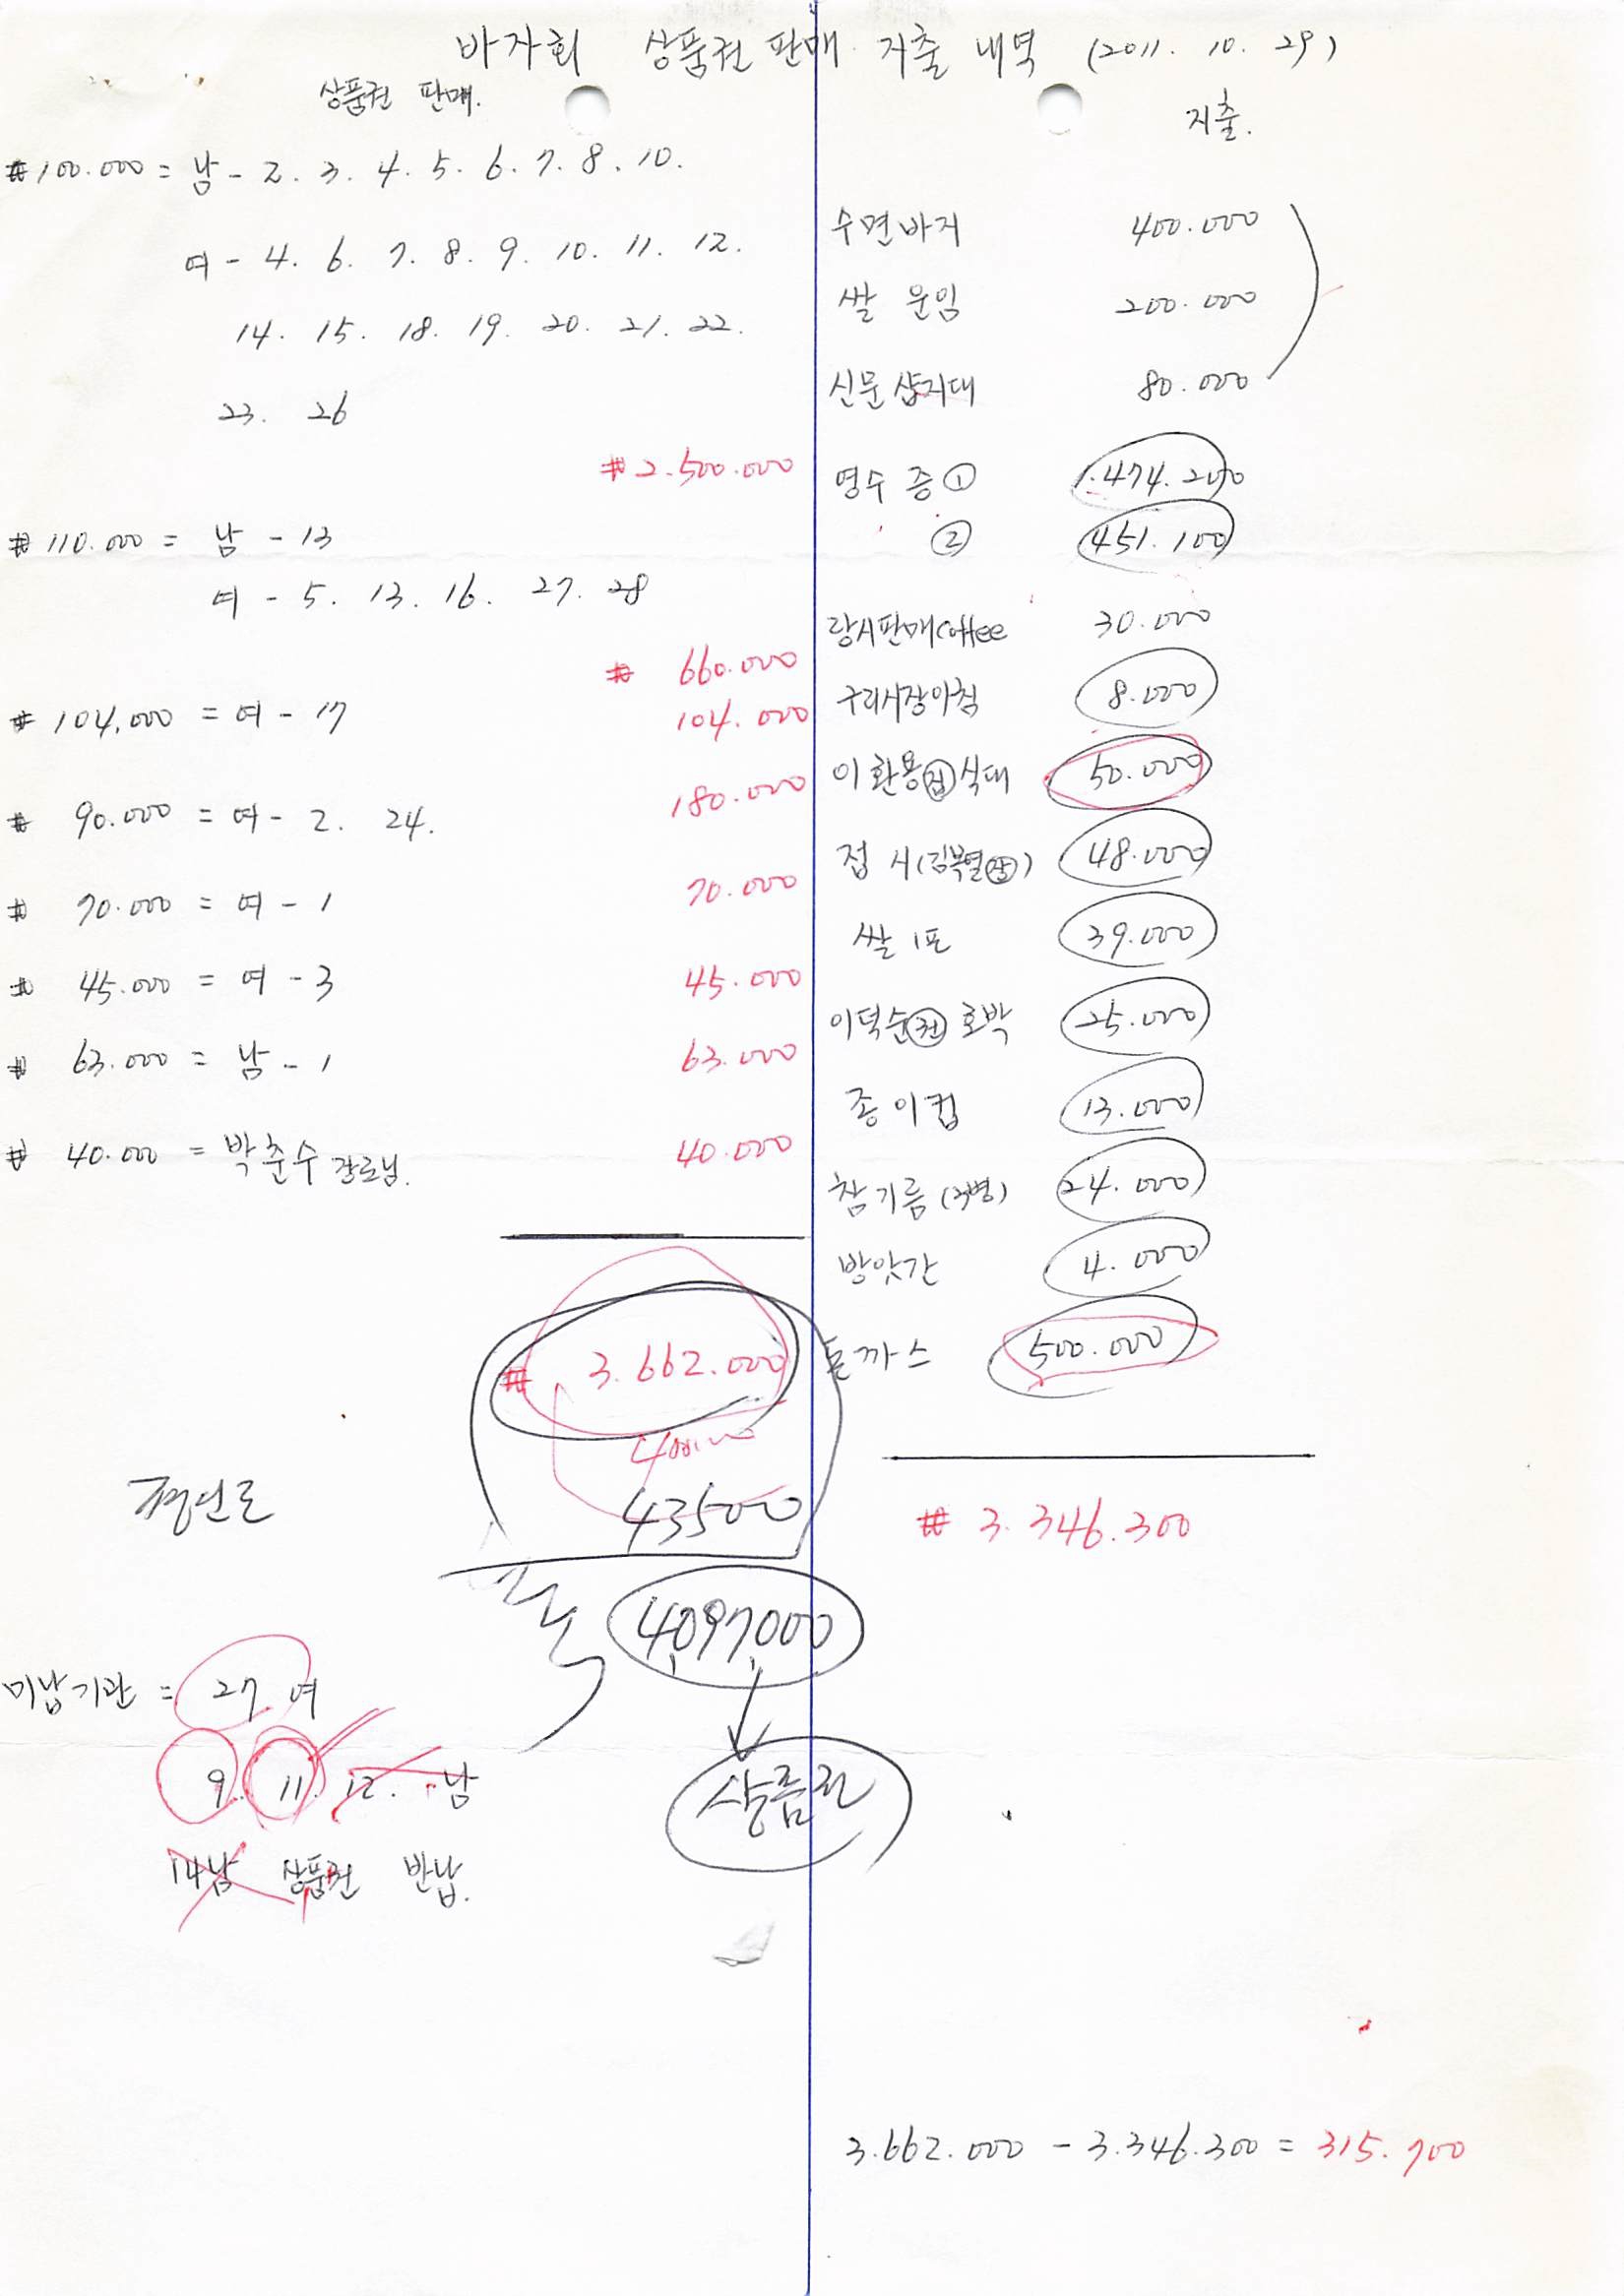 바자회 상품권 판매 지출 내역 (2011. 10. 29)
상품권 판매.
#100.000 = 남 - 2. 3. 4. 5. 6. 7. 8. 10.
여 - 4. 6. 7. 8. 9. 10. 11. 12.
14. 15. 18. 19. 20. 21. 22.
23. 26
#2.500.000
#110.000 = 남 - 13
여 - 5. 13. 16. 27. 28
# 660.000
# 104,000 = 여 - 17 104.000
# 90.000 = 여 - 2. 24. 180.000
# 70.000 = 여 - 1 70.000
# 45.000 = 여 - 3 45.000
# 63.000 = 남 - 1 63.000
# 40.000 = 박춘수 장로님. 40.000
# 3.662.000
400.000
435000
4,097,000
상품권
미납기관 = 27 여
9. 11. 12. 남
14남 상품권 반납.
지출.
수면바지 400.000
쌀 운임 200.000
신문삽지대 80.000
영수증① 1.474.200
② 451.100
랑시판매coffee 30.000
구리시장아침 8.000
이환용집식대 50.000
접시(김복열) 48.000
쌀 1포 39.000
이덕순권 호박 25.000
종이컵 13.000
참기름(3병) 24.000
방앗간 4.000
돈까스 500.000
# 3.346.300
3.662.000 - 3.346.300 = 315.700